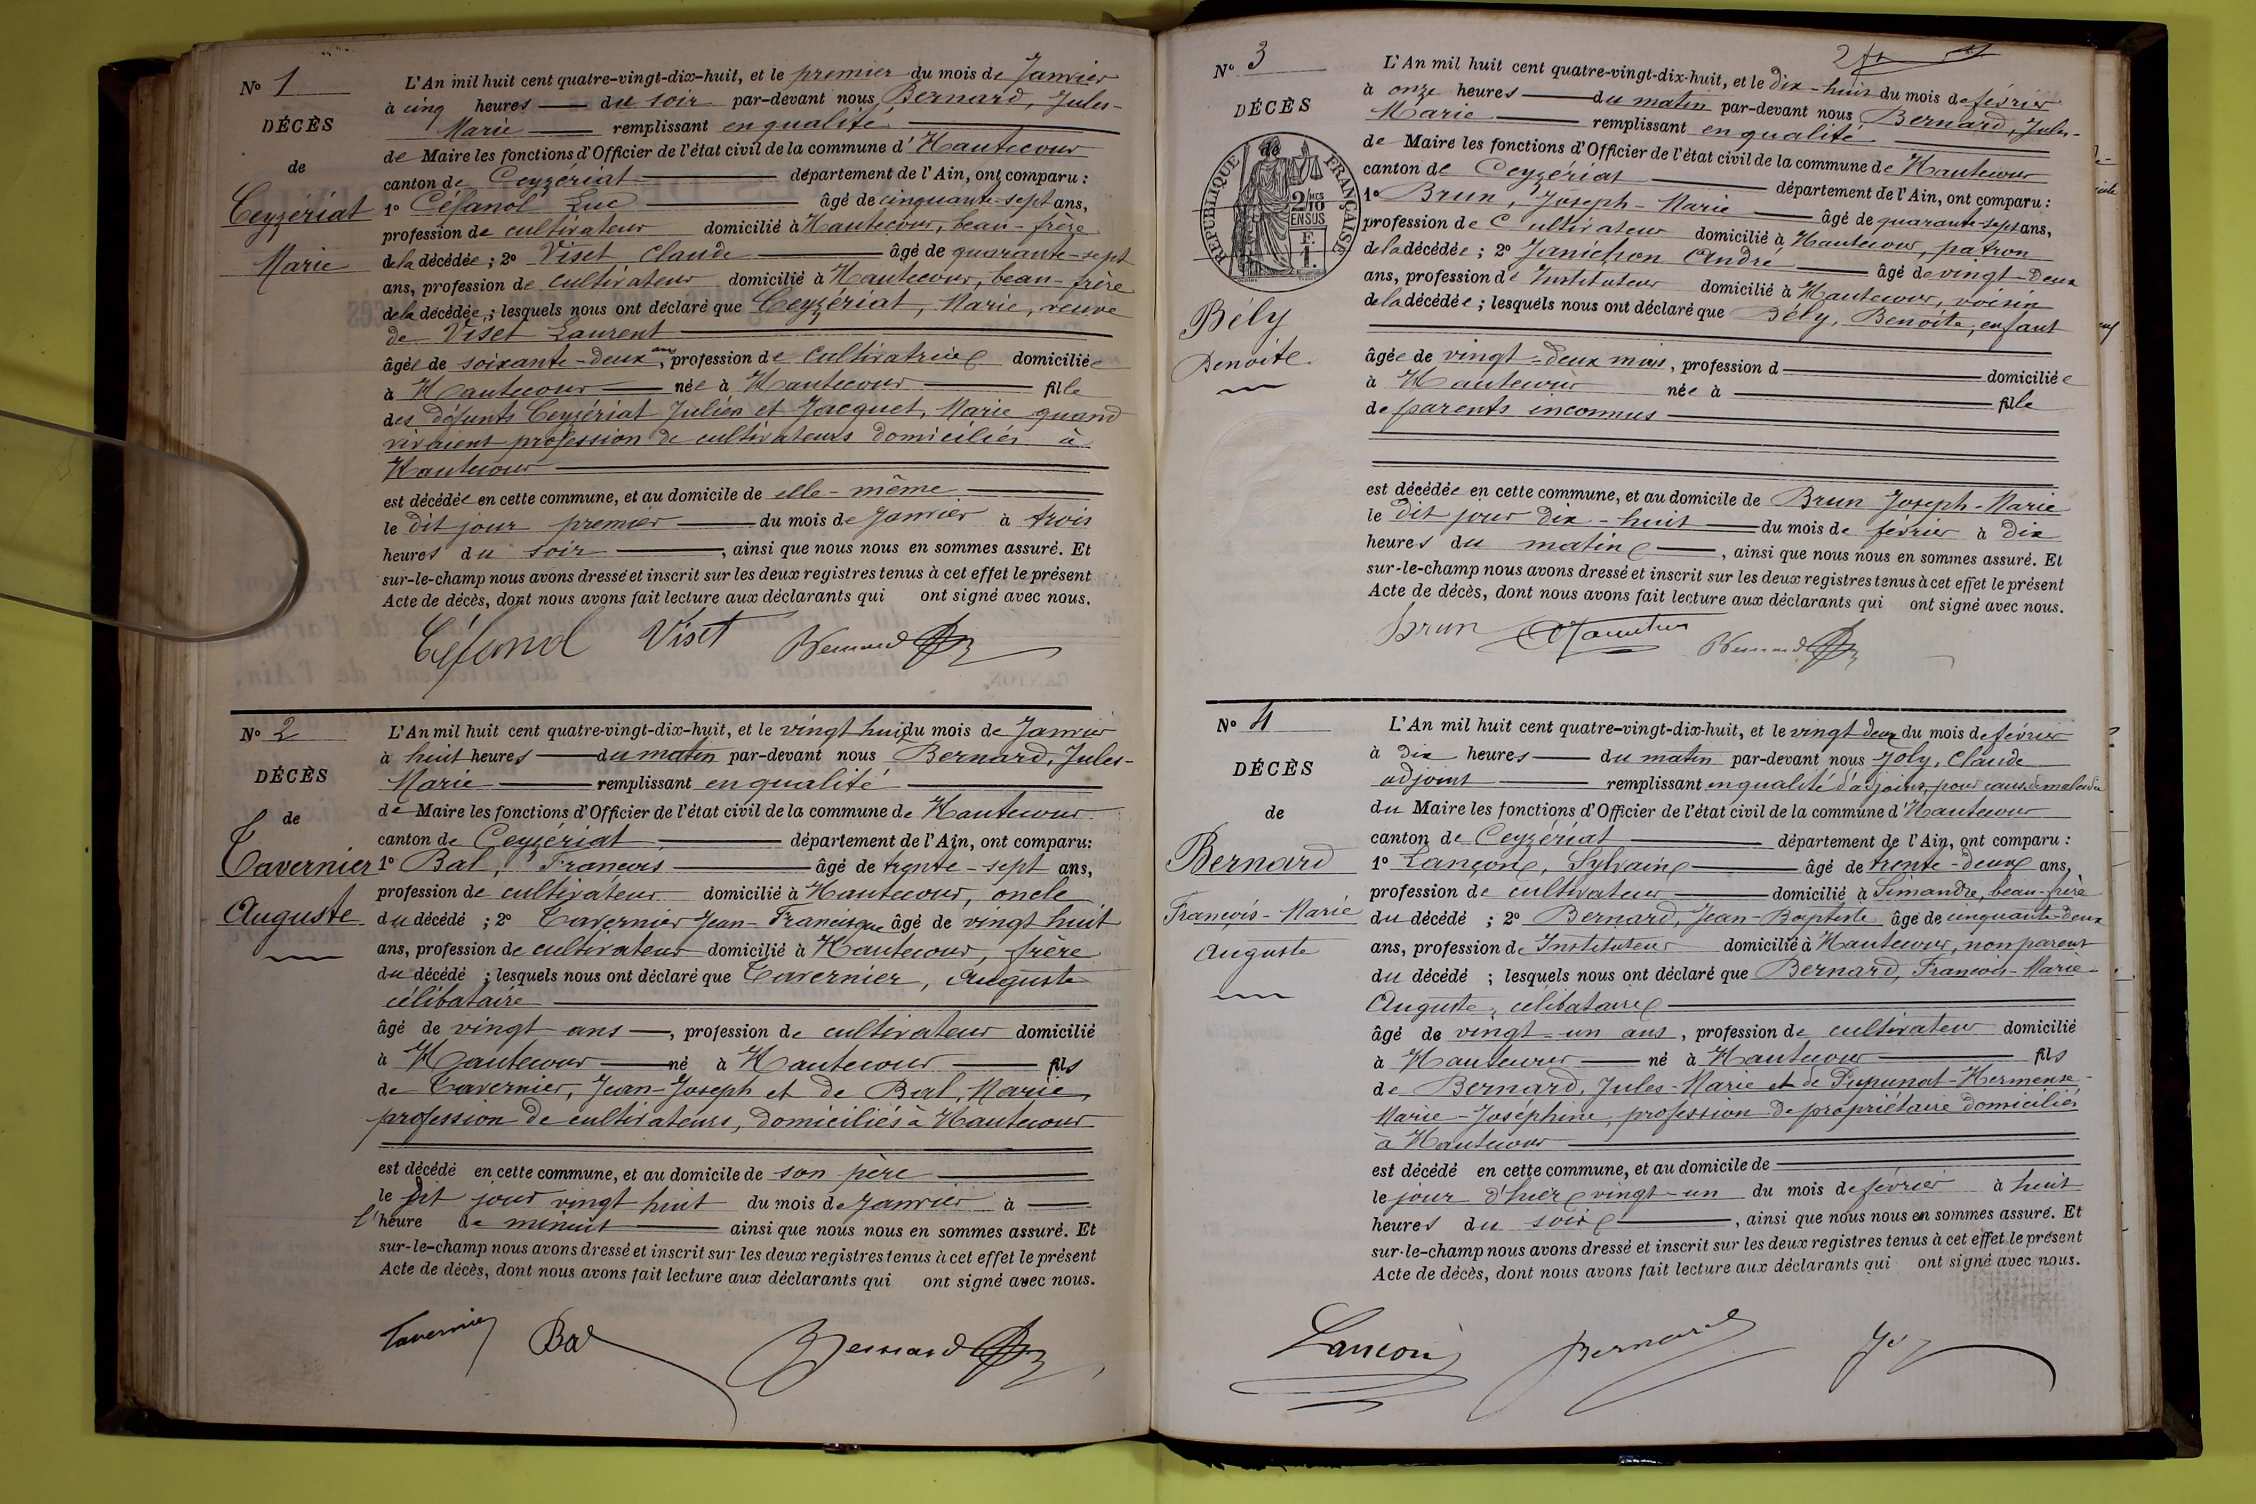 N° 1
DÉCÈS
de
Ceyzériat
Marie
L'An mil huit cent quatre-vingt-dix-huit, et le premier du mois de Janvier
à cinq heures du soir par-devant nous Bernard, Jules-
Marie remplissant en qualité
de Maire les fonctions d'Officier de l'état civil de la commune d'Hautecour
canton de Ceyzériat département de l'Ain, ont comparu :
1° Céfanol Luc âgé de cinquante-sept ans,
profession de cultivateur domicilié à Hautecour, beau-frère
de la décédée ; 2° Viset Claude âgé de quarante-sept
ans, profession de cultivateur domicilié à Hautecour, beau-frère
de la décédée ; lesquels nous ont déclaré que Ceyzériat, Marie, veuve
de Viset Laurent
âgée de soixante-deux ans, profession de cultivatrice domiciliée
à Hautecour née à Hautecour fille
des défunts Ceyzériat Julien et Jacquet, Marie quand
vivaient profession de cultivateurs domiciliés à
Hautecour
est décédée en cette commune, et au domicile de elle-même
le dit jour premier du mois de Janvier à trois
heures du soir, ainsi que nous nous en sommes assuré. Et
sur-le-champ nous avons dressé et inscrit sur les deux registres tenus à cet effet le présent
Acte de décès, dont nous avons fait lecture aux déclarants qui ont signé avec nous.
Céfanol Viset Bernard
N° 2
DÉCÈS
de
Tavernier
Auguste
L'An mil huit cent quatre-vingt-dix-huit, et le vingt huit du mois de Janvier
à huit heures du matin par-devant nous Bernard, Jules-
Marie remplissant en qualité
de Maire les fonctions d'Officier de l'état civil de la commune de Hautecour
canton de Ceyzériat département de l'Ain, ont comparu:
1° Bal, François âgé de trente-sept ans,
profession de cultivateur domicilié à Hautecour, oncle
du décédé ; 2° Tavernier Jean-Francisque âgé de vingt huit
ans, profession de cultivateur domicilié à Hautecour, frère
du décédé ; lesquels nous ont déclaré que Tavernier, Auguste
célibataire
âgé de vingt ans, profession de cultivateur domicilié
à Hautecour né à Hautecour fils
de Tavernier, Jean-Joseph et de Bal, Marie,
profession de cultivateurs, domiciliés à Hautecour
est décédé en cette commune, et au domicile de son père
le dit jour vingt huit du mois de Janvier à
l'heure de minuit ainsi que nous nous en sommes assuré. Et
sur-le-champ nous avons dressé et inscrit sur les deux registres tenus à cet effet le présent
Acte de décès, dont nous avons fait lecture aux déclarants qui ont signé avec nous.
Tavernier Bal Bernard
N° 3
DÉCÈS
de
RÉPUBLIQUE FRANÇAISE
2/10 MES
EN SUS
F.
1.
Bély
Benoite
L'An mil huit cent quatre-vingt-dix-huit, et le dix-huit du mois de février
à onze heures du matin par-devant nous Bernard, Jules-
Marie remplissant en qualité
de Maire les fonctions d'Officier de l'état civil de la commune de Hautecour
canton de Ceyzériat département de l'Ain, ont comparu :
1° Brun, Joseph-Marie âgé de quarante-sept ans,
profession de Cultivateur domicilié à Hautecour, patron
de la décédée ; 2° Janichon André âgé de vingt-deux
ans, profession de Instituteur domicilié à Hautecour, voisin
de la décédée ; lesquels nous ont déclaré que Bély, Benoite, enfant
âgée de vingt-deux mois, profession d domiciliée
à Hautecour née à fille
de parents inconnus
est décédée en cette commune, et au domicile de Brun Joseph-Marie
le dit jour dix-huit du mois de février à dix
heures du matin, ainsi que nous nous en sommes assuré. Et
sur-le-champ nous avons dressé et inscrit sur les deux registres tenus à cet effet le présent
Acte de décès, dont nous avons fait lecture aux déclarants qui ont signé avec nous.
Brun Bernard
N° 4
DÉCÈS
de
Bernard
François-Marie
Auguste
L'An mil huit cent quatre-vingt-dix-huit, et le vingt deux du mois de février
à dix heures du matin par-devant nous Joly, Claude
adjoint remplissant en qualité d'adjoint, pour cause de maladie
du Maire les fonctions d'Officier de l'état civil de la commune d'Hautecour
canton de Ceyzériat département de l'Ain, ont comparu :
1° Lançon, Sylvain âgé de trente-deux ans,
profession de cultivateur domicilié à Simandre, beau-frère
du décédé ; 2° Bernard, Jean-Baptiste âgé de cinquante-deux
ans, profession de Instituteur domicilié à Hautecour, non parent
du décédé ; lesquels nous ont déclaré que Bernard, François-Marie-
Auguste, célibataire
âgé de vingt-un ans, profession de cultivateur domicilié
à Hautecour né à Hautecour fils
de Bernard, Jules-Marie et de Pupunat-Hermense-
Marie-Joséphine, profession de propriétaire domiciliés
à Hautecour
est décédé en cette commune, et au domicile de
le jour d'hier vingt-un du mois de février à huit
heures du soir, ainsi que nous nous en sommes assuré. Et
sur-le-champ nous avons dressé et inscrit sur les deux registres tenus à cet effet le présent
Acte de décès, dont nous avons fait lecture aux déclarants qui ont signé avec nous.
Lançon Bernard